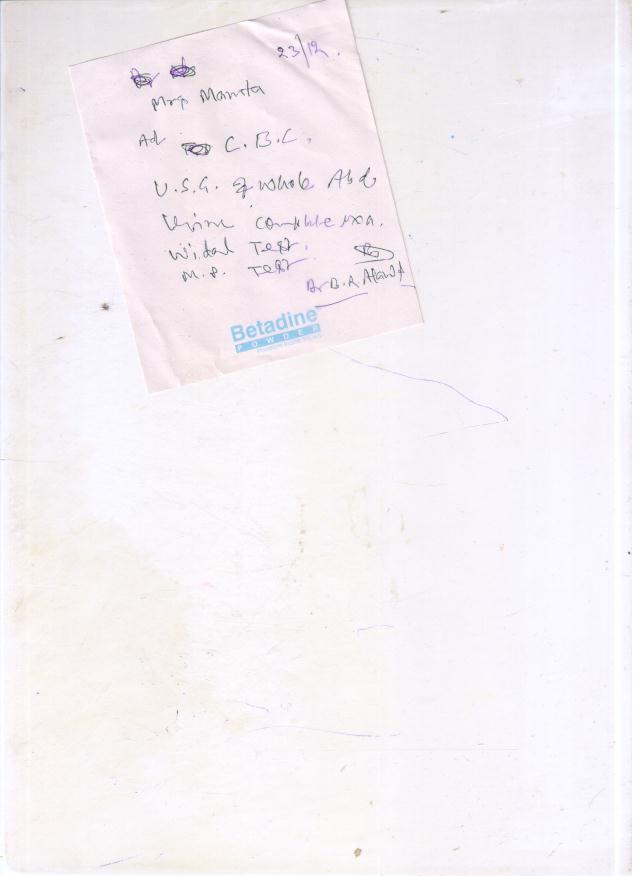 23/12.
Mrs Mamta
Ad C.B.C.
U.S.G. of whole Abd
Urine complete exa.
Widal Test.
M.P. Test
Dr B.R.
Betadine
POWDER